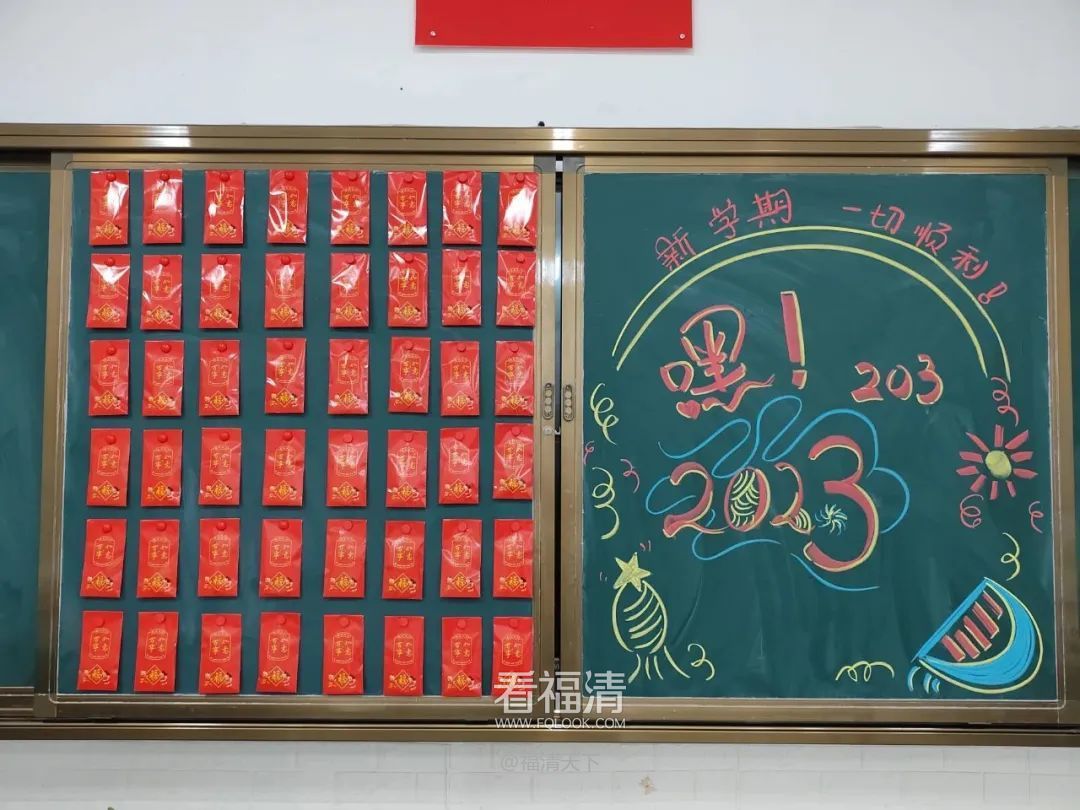 新学期 一切顺利！
嘿！ 203
2023
万事如意
福
看福清
WWW.FQLOOK.COM
@福清天下